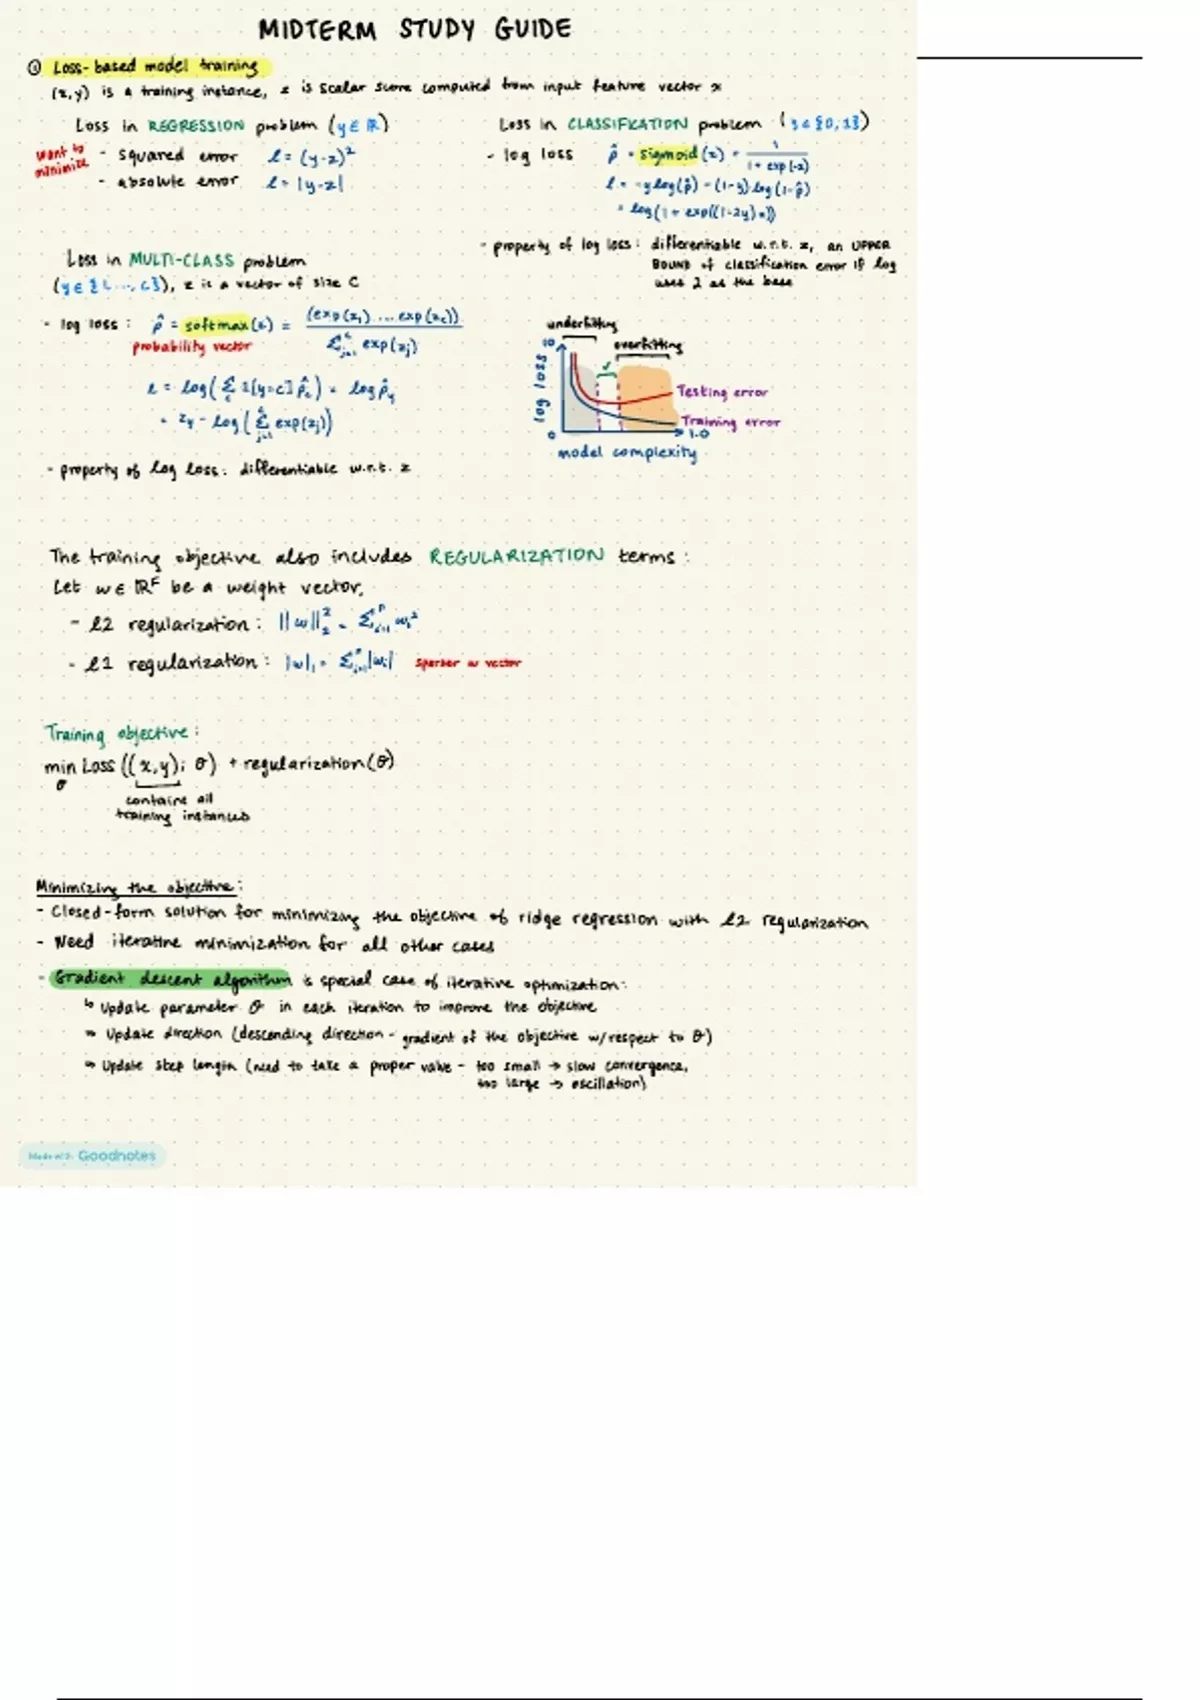 MIDTERM STUDY GUIDE
① Loss-based model training
(x,y) is a training instance, z is scalar score computed from input feature vector x
Loss in REGRESSION problem (y ∈ ℝ)
want to minimize
- squared error ℓ = (y-z)²
- absolute error ℓ = |y-z|
Loss in CLASSIFICATION problem (y ∈ {0,1})
- log loss p̂ = sigmoid(z) = 1 / 1 + exp(-z)
ℓ = -y log(p̂) - (1-y) log(1-p̂)
= log(1 + exp((1-2y)z))
- property of log loss: differentiable w.r.t. z, an UPPER
BOUND of classification error if log
uses 2 as the base
Loss in MULTI-CLASS problem
(y ∈ {1, ..., C}), z is a vector of size C
- log loss: p̂ = softmax(z) = (exp(z₁) ... exp(z_C)) / Σ_{j=1}^C exp(z_j)
probability vector
ℓ = log(Σ_c 1[y=c] p̂_c) = log p̂_y
= z_y - log(Σ_{j=1}^C exp(z_j))
- property of log loss: differentiable w.r.t. z
underfitting
overfitting
✓
log loss
Testing error
Training error
0
1.0
model complexity
The training objective also includes REGULARIZATION terms:
Let w ∈ ℝ^F be a weight vector,
- ℓ2 regularization: ||w||₂² = Σ_{i=1}^F w_i²
- ℓ1 regularization: |w|₁ = Σ_{i=1}^F |w_i| sparser w vector
Training objective:
min Loss((x,y); θ) + regularization(θ)
θ
contains all
training instances
Minimizing the objective:
- Closed-form solution for minimizing the objective of ridge regression with ℓ2 regularization
- Need iterative minimization for all other cases
- Gradient descent algorithm is special case of iterative optimization:
↳ Update parameter θ in each iteration to improve the objective
↳ Update direction (descending direction - gradient of the objective w/respect to θ)
↳ Update step length (need to take a proper value - too small → slow convergence,
too large → oscillation)
Made with Goodnotes